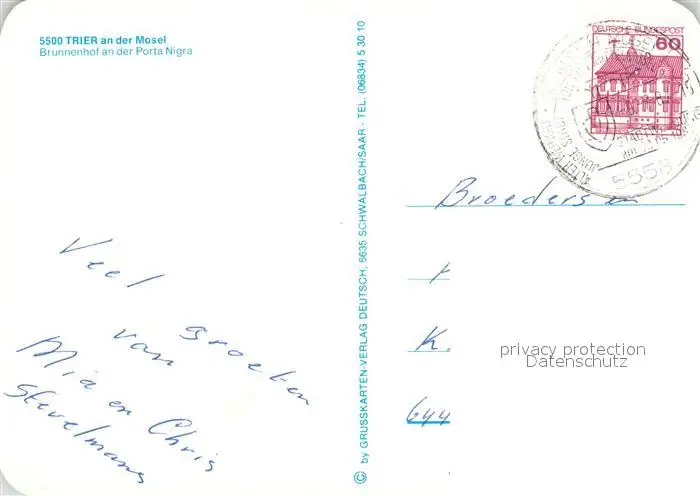 5500 TRIER an der Mosel
Brunnenhof an der Porta Nigra
Veel groeten
van
Mia en Chris
Stevelmans
© by GRUSSKARTEN-VERLAG DEUTSCH, 6635 SCHWALBACH/SAAR - TEL. (06834) 5 30 10
DEUTSCHE BUNDESPOST
60
5558
Broeders en
K.
644
privacy protection
Datenschutz